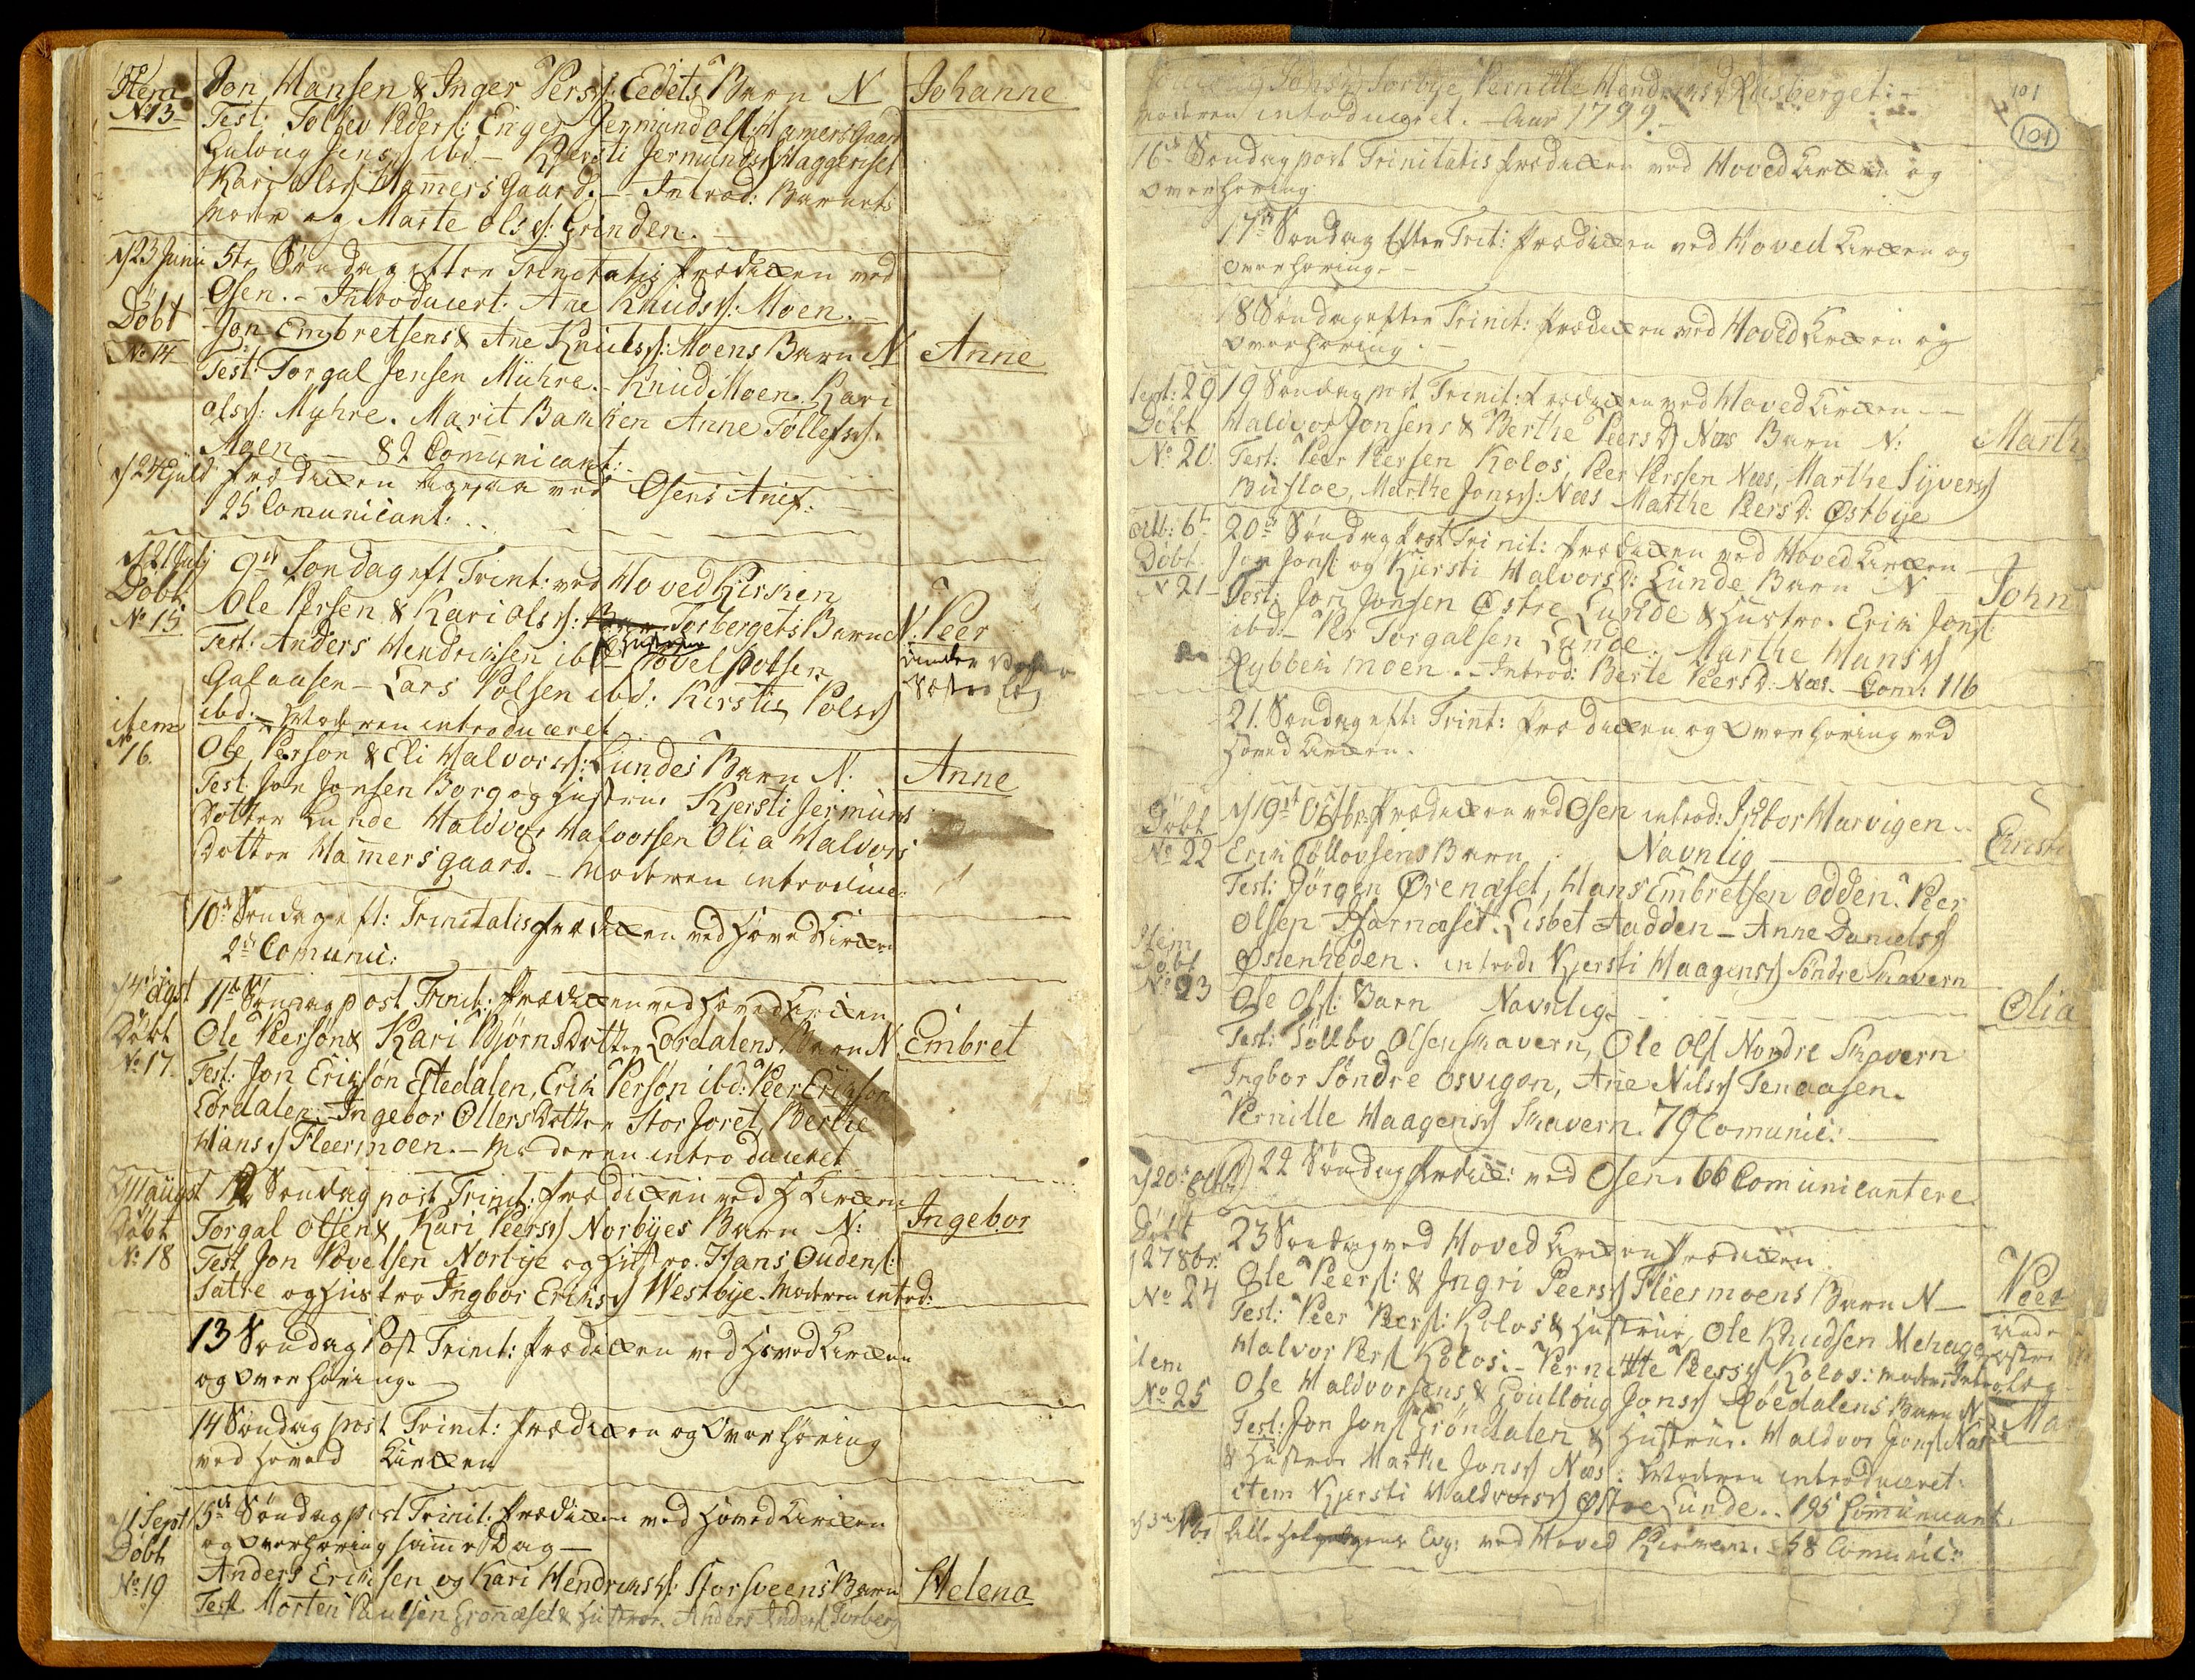 Item Jon Hansen & Inger Persd: Eedets Barn N Johanne
No 13 Test: Tollev Peders: Enger Jermund ols: HamersGaard
Guloug Jensd ibd - Kjersti Jermundsd Haggeriset
Kari olsd: HamersGaard. - Introd: Barnets
Moder og Marte olsd: Grinden.
d 23 Junii 5te Søndag efter Trinitatis Prædiken ved
Osen. - Introducert. Ane Knudsd: Moen. -
Döbt Jon Embretsens & Ane Knudsd: Moens Barn N Anne
No 14 Test: Torgal Jensen Mühre. - Knud Moen. Kari
olsd: Myhre. Marit Bakken Anne Tollefsd:
Moen. - 82 Communicant:
d 24 Prædiken ligesaa ved Osens Anex.
25 Comunicant:
d 21 July 9de Søndag eft Trint: ved Hoved Kirken
Döbt Ole Persen & Kari olsd: Torbergets Barn N. Peer
No 15 Test: Anders Hendriksen ibd Povel Polsen
Galaasen - Lars Polsen ibd: Kirstie Polsd
ibd: - Moderen introduceret
item Ole Persøn & Eli Halvorsd: Lundes Barn N: Anne
No 16. Test Jon Jonsen Borg og hustru Kjersti Jermuns
Dotter Lunde Haldvor Halvorsen Olia Halvors
Dotter Hamersgaard. - Moderen introduce:
10de Søndag eft: Trinitatis Prædiken ved Hoved Kirken
2de Comunic:
d 4de Agst 11te Søndag post Trinit: Prædiken ved Hoved Kirken
Döbt Ole Persøn & Kari Bjørns Dotter Lördalens Barn N Embret
No 17. Test: Jon Eriksøn Eltedalen, Erik Persøn ibd: Peer Eriksøn
Lördalen. - Ingebor Ollers Dotter Storjoret, Berthe
Hansd Fleermoen. - Moderen introduceret
d 11 August 12 Søndag post Trinit. Prædiken ved H Kirken
Döbt Torgal Olsen & Kari Peersd Norbÿes Barn N: Ingebor
No 18 Test Jon Povelsen Norbÿe og hustro. Hans Oudens:
Sætre og hustro Ingbor Eriksd Westbÿe. Moderen introd:
13 Søndag Post Trinit: Prædiken ved Hoved Kirken
og Overhøring.
14 Søndag post Trinit: Prædiken og Overhøring
ved Hoved Kirken
d 1 Sept 15de Søndag post Trinit: Prædiken ved Hoved Kirken
og Overhøring samme Dag -
Döbt Anders Eriksen og Kari Hendriksd: Storsveens Barn Helena
No 19 Test Morten Paulsen Grønæset & Hustroe. Anders Anders Torberg
Torbÿe Pernille Hendriksd Risberget:
Moderen introduceret. - Aar 1799. 101
16de Søndag post Trinitatis Prædiken ved Hoved Kirken og (101)
Overhøring.
17de Søndag Efter Trit: Prædiken ved Hoved Kirken og
Overhøring. -
18 Søndag efter Trinit: Prædiken ved Hoved Kirken og
Overhøring. -
Sept: 29 19 Søndag post Trinit: Prædiken ved Hoved Kirken. -
Döbt Haldvor Jonsens & Berthe Peersd Næs Barn N: Marth
No 20 Test: Peer Persen Kolos, Peer Perssen Næs, Marthe Sÿversd
Bufloe, Marthe Jonsd: Næs Marthe Peersd: Østbÿe
Octb: 6te 20de Søndag Post Trinit: Prædiken ved Hoved Kirken
Döbt Jon Jons: og Kjersti Halvorsd: Lunde Barn N - John
N 21 - Test: Jon Jonsen Østre Lunde & Hustro. Erik Jons:
ibd: - Per Torgalsen Lunde. Marthe Hansd
Rybbekmoen. - Introd: Berte Peersd: Næs. - Com: 116
21. Søndag eft: Trint: Prædiken og Overhøring ved
Hoved Kirken.
d 19de Octbr: Prædiken ved Osen introd: Ingbor Harvigen.
Döbt Erik Tollovsens Barn Navnlig Eristi
No 22 Test: Jörgen Ørenæset, Hans Embretsen Odden. Peer
Olsen Hornæset. Lisbet Aadden - Anne Danielsd
Østenheden. introd: Kjersti Haagensd Söndre Skavern
Item Döbt Ole Ols: Barn Navnlig Olia
No 23 Test: Tollov Olsen Skavern, Ole Ols Nordre Skavern
Ingbor Söndre Osvigen, Ane Nilsd Tenaasen.
Pernille Haagensd Skavern. 79 Comunic:
d 20de Octbr 22 Søndag Prædik: ved Osen. 66 Comunicantere
Döbt 23 Søndag ved Hoved Kirken Prædiken
d 27 8br: Ole Peers: & Ingri Peersd Fleermoens Barn N - Peer
No 24 Test: Peer Peers: Kolos & Hustrue, Ole Knudsen Mehage
Halvor Pers Kolos. - Pernille Peersd Kolos: Moderen Introd
Item Ole Haldvorsens & Goulloug Jonsd Röedalens Barn N Ma
No 25 Test: Jon Jons Gröndalen & Hustrue. Haldvor Jons Næs
& Hustroe Marthe Jonsd Næs. Moderen introduceret:
item Kjersti Haldvorsd Østre Lunde. 195 Communicant.
d 3de Nbr: Alle Helgens Evg: ved Hoved Kirken. - 58 Comunic: